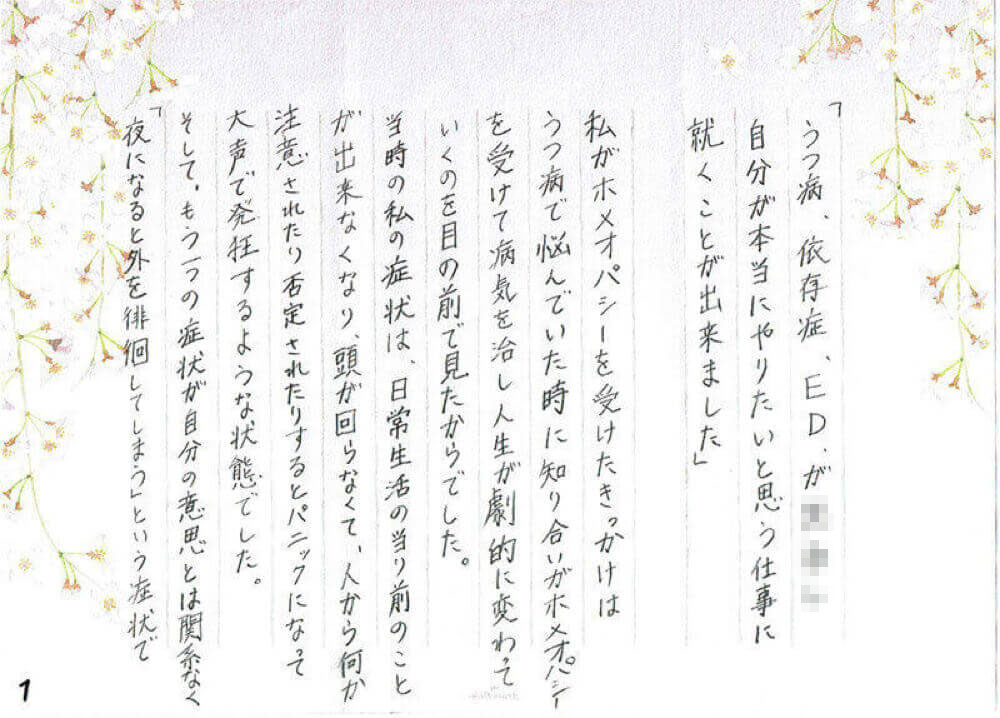 「うつ病、依存症、ED、が
自分が本当にやりたいと思う仕事に
就くことが出来ました」
私がホメオパシーを受けたきっかけは
うつ病で悩んでいた時に知り合いがホメオパシー
を受けて病気を治し人生が劇的に変わって
いくのを目の前で見たからでした。
当時の私の症状は、日常生活の当り前のこと
が出来なくなり、頭が回らなくて、人から何か
注意されたり否定されたりするとパニックになって
大声で発狂するような状態でした。
そして、もう一つの症状が自分の意思とは関係なく
「夜になると外を徘徊してしまう」という症状で
1